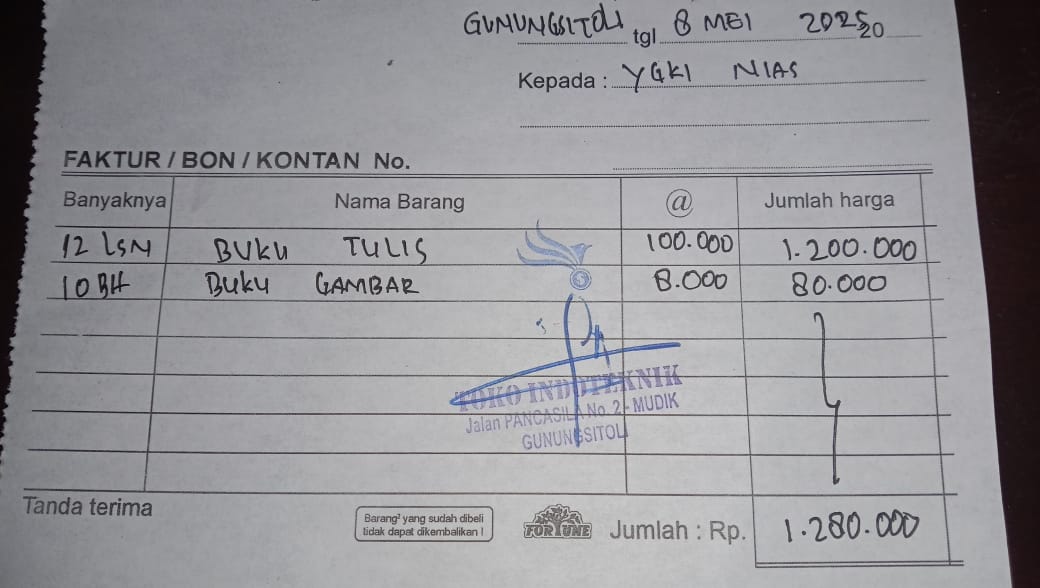 GUNUNGSITOLI tgl 8 MEI 2025 20
Kepada : YGKI NIAS
FAKTUR / BON / KONTAN No.
Banyaknya Nama Barang @ Jumlah harga
12 LSN BUKU TULIS 100.000 1.200.000
10 BH BUKU GAMBAR 8.000 80.000
TOKO INDOTEKNIK
Jalan PANCASILA No. 2 - MUDIK
GUNUNGSITOLI
Tanda terima
Barang² yang sudah dibeli
tidak dapat dikembalikan !
FORTUNE
Jumlah : Rp. 1.280.000